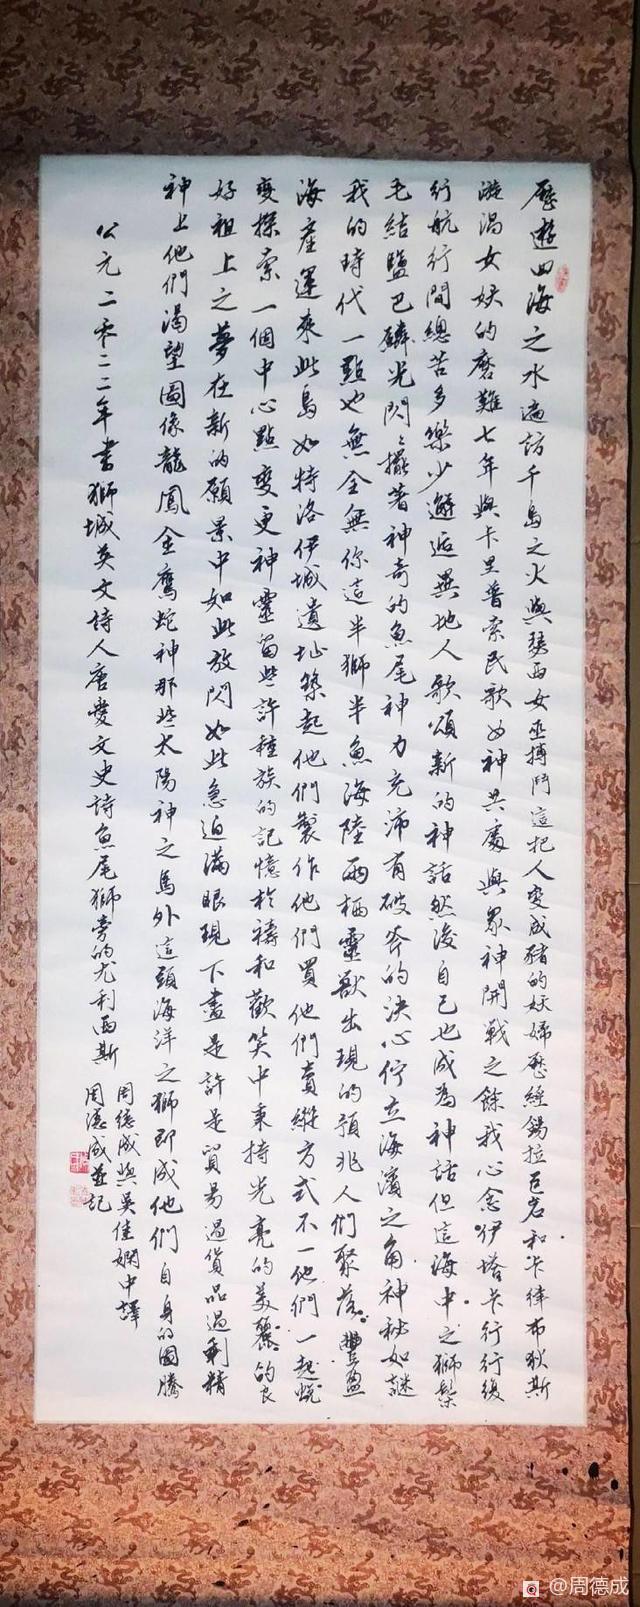 歷遊四海之水遍訪千島之火與瑟西女巫搏鬥這把人變成豬的妖婦歷經錫拉巨岩和卡律布狄斯
漩渦女妖的磨難七年與卡里普索民歌女神共處與眾神開戰之餘我心念伊塔卡行行復
行航行間總苦多樂少邂逅異地人歌頌新的神話然後自己也成為神話但這海中之獅鬃
毛結鹽巴磷光閃閃擺著神奇的魚尾神力充沛有破斧的決心佇立海濱之角神秘如謎
我的時代一點也無全無你這半獅半魚海陸兩棲靈獸出現的預兆人們聚落豐盈
海產運來此島如特洛伊城遺址築起他們製作他們買他們賣縱方式不一他們一起蛻
變探索一個中心點變更神靈留些許種族的記憶於禱和歡笑中秉持光亮的美麗的良
好祖上之夢在新的願景中如此放閃如此急迫滿眼現下盡是許是貿易過貨品過剩精
神上他們渴望圖像龍鳳金鷹蛇神那些太陽神之馬外這頭海洋之獅即成他們自身的圖騰
公元二零二二年書獅城英文詩人唐愛文史詩魚尾獅旁的尤利西斯
周德成與吳佳嫻中譯
周德成並記
@周德成